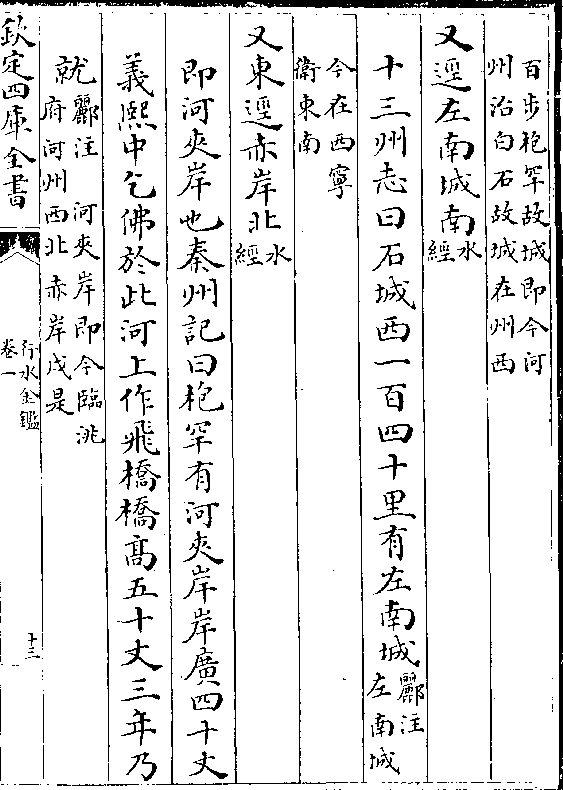 百步枹罕故城即今河
州治白石故城在州西
又逕左南城南水經
十三州志曰石城西一百四十里有左南城酈注左南城
今在西寧
衛東南
又東逕赤岸北水經
即河夾岸也秦州記曰枹罕有河夾岸岸廣四十丈
義熙中乞佛於此河上作飛橋橋髙五十丈三年乃
就酈注河夾岸即今臨洮府河州西北赤岸戍是
欽定四庫全書
行水金鑑
卷一
十三